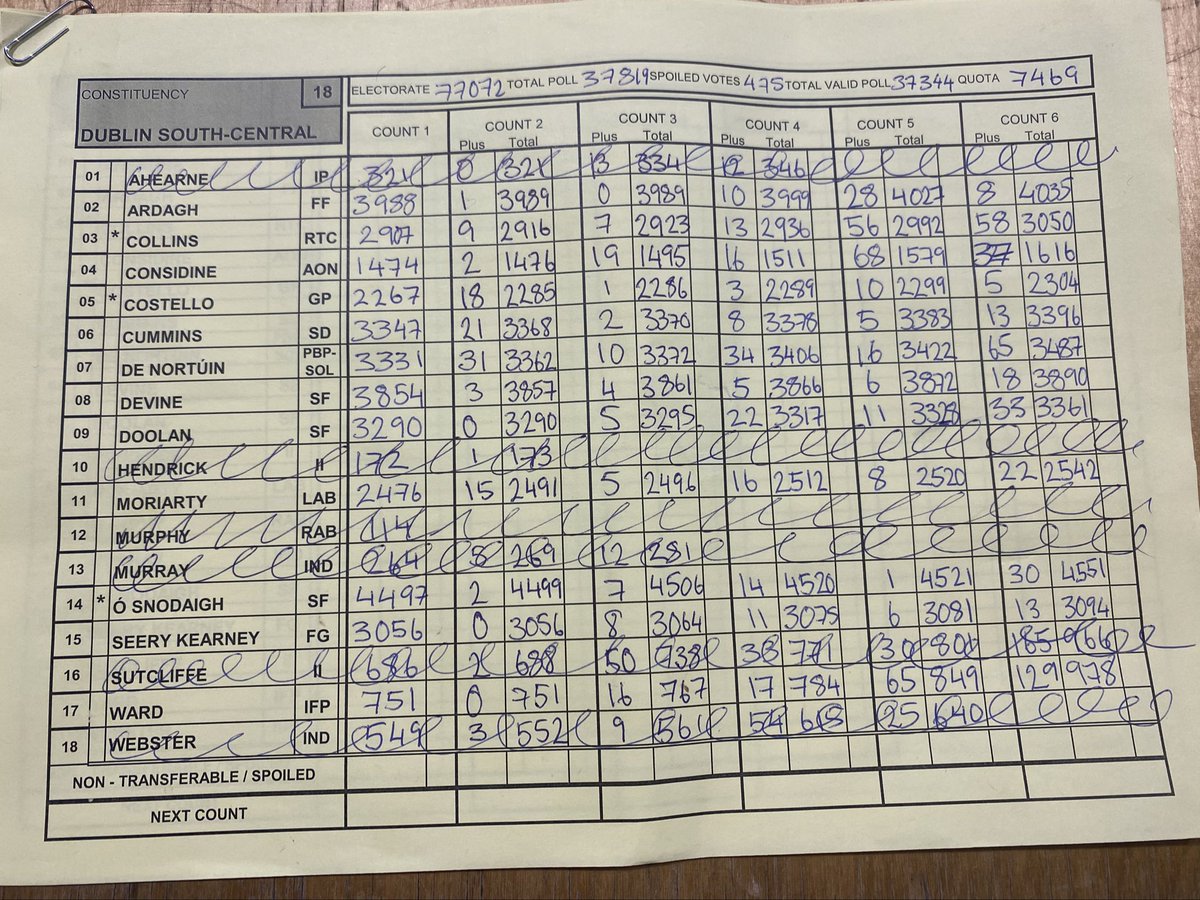 CONSTITUENCY 18
DUBLIN SOUTH-CENTRAL
ELECTORATE 77072 TOTAL POLL 37819 SPOILED VOTES 475 TOTAL VALID POLL 37344 QUOTA 7469
COUNT 1 COUNT 2 COUNT 3 COUNT 4 COUNT 5 COUNT 6
Plus Total Plus Total Plus Total Plus Total Plus Total
01 AHEARNE IP 321 0 321 13 334 12 346
02 ARDAGH FF 3988 1 3989 0 3989 10 3999 28 4027 8 4035
03 * COLLINS RTC 2907 9 2916 7 2923 13 2936 56 2992 58 3050
04 CONSIDINE AON 1474 2 1476 19 1495 16 1511 68 1579 37 1616
05 * COSTELLO GP 2267 18 2285 1 2286 3 2289 10 2299 5 2304
06 CUMMINS SD 3347 21 3368 2 3370 8 3378 5 3383 13 3396
07 DE NORTÚIN PBP-SOL 3331 31 3362 10 3372 34 3406 16 3422 65 3487
08 DEVINE SF 3854 3 3857 4 3861 5 3866 6 3872 18 3890
09 DOOLAN SF 3290 0 3290 5 3295 22 3317 11 3328 33 3361
10 HENDRICK II 172 1 173
11 MORIARTY LAB 2476 15 2491 5 2496 16 2512 8 2520 22 2542
12 MURPHY RAB 114
13 MURRAY IND 264 269 12 281
14 * Ó SNODAIGH SF 4497 2 4499 7 4506 14 4520 1 4521 30 4551
15 SEERY KEARNEY FG 3056 0 3056 8 3064 11 3075 6 3081 13 3094
16 SUTCLIFFE II 686 2 688 50 738 33 771 30 185
17 WARD IFP 751 0 751 16 767 17 784 65 849 129 978
18 WEBSTER IND 549 3 552 9 561 54 615 25 640
NON - TRANSFERABLE / SPOILED
NEXT COUNT